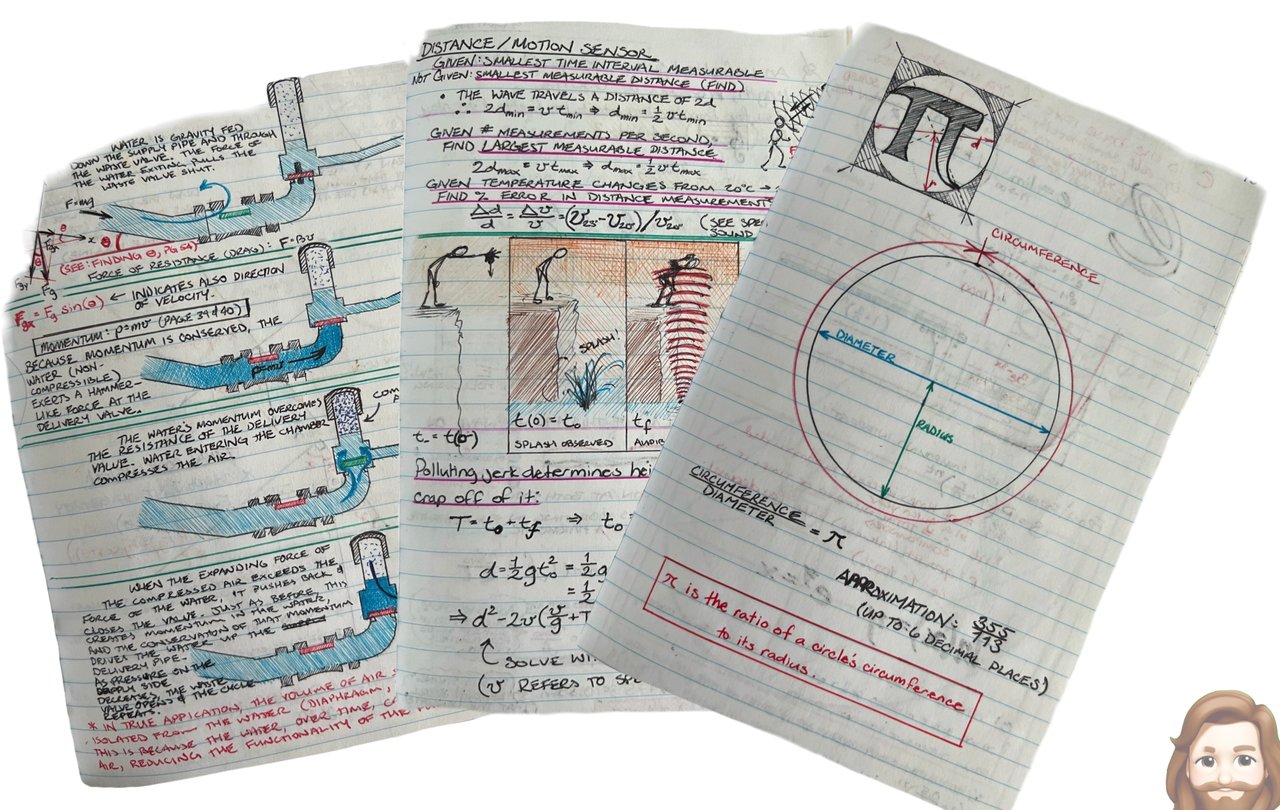 WATER IS GRAVITY FED
DOWN THE SUPPLY PIPE AND THROUGH
THE WASTE VALVE. THE FORCE OF
THE WATER EXITING PULLS THE
WASTE VALVE SHUT.
F=mg
x
θ
θ
Fg
(SEE: FINDING θ, PG 54)
FORCE OF RESISTANCE (DRAG): F=Bv
Fgx = Fg sin(θ) ← INDICATES ALSO DIRECTION
OF VELOCITY.
MOMENTUM: p=mv (PAGE 39 & 40)
BECAUSE MOMENTUM IS CONSERVED, THE
WATER (NON-
COMPRESSIBLE)
EXERTS A HAMMER-
LIKE FORCE AT THE
DELIVERY VALVE.
p=mv
THE WATER'S MOMENTUM OVERCOMES
THE RESISTANCE OF THE DELIVERY
VALVE. WATER ENTERING THE CHAMBER
COMPRESSES THE AIR.
WHEN THE EXPANDING FORCE OF
THE COMPRESSED AIR EXCEEDS THE
FORCE OF THE WATER, IT PUSHES BACK &
CLOSES THE VALVE. JUST AS BEFORE, THIS
CREATES MOMENTUM IN THE WATER,
AND THE CONSERVATION OF THAT MOMENTUM
DRIVES THE WATER UP THE
DELIVERY PIPE.
AS PRESSURE ON THE
SUPPLY SIDE
DECREASES, THE WASTE
VALVE OPENS & THE CYCLE
REPEATS.
* IN TRUE APPLICATION, THE VOLUME OF AIR
ISOLATED FROM THE WATER (DIAPHRAGM,
THIS IS BECAUSE THE WATER, OVER TIME,
AIR, REDUCING THE FUNCTIONALITY OF THE
DISTANCE/MOTION SENSOR
GIVEN: SMALLEST TIME INTERVAL MEASURABLE
NOT GIVEN: SMALLEST MEASURABLE DISTANCE (FIND)
• THE WAVE TRAVELS A DISTANCE OF 2d
∴ 2dmin = vtmin ⇒ dmin = 1/2 vtmin
GIVEN # MEASUREMENTS PER SECOND,
FIND LARGEST MEASURABLE DISTANCE
2dmax = vtmax ⇒ dmax = 1/2 vtmax
GIVEN TEMPERATURE CHANGES FROM 20°C →
FIND % ERROR IN DISTANCE MEASUREMENT
Δd/d = Δv/v = (v25° - v20°)/v20° (SEE
SOUND
SPLASH!
t(0) = t0
tf
SPLASH OBSERVED
Polluting jerk determines
crap off of it:
T = t0 + tf ⇒ t0
d = 1/2 gt0² = 1/2 g
= 1/2
⇒ d² - 2v(v/g + T
SOLVE
(v REFERS TO
π
r
r
CIRCUMFERENCE
DIAMETER
RADIUS
CIRCUMFERENCE/DIAMETER = π
APPROXIMATION: 355/113
(UP TO 6 DECIMAL PLACES)
π is the ratio of a circle's circumference
to its radius.